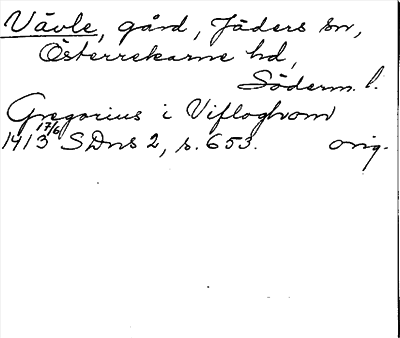 Vävle, gård, Jäders sn,
Österrekarne hd,
Söderm. l.
Gregorius i Vifloghrom
1413 17/6 SDns 2, s. 653. orig.